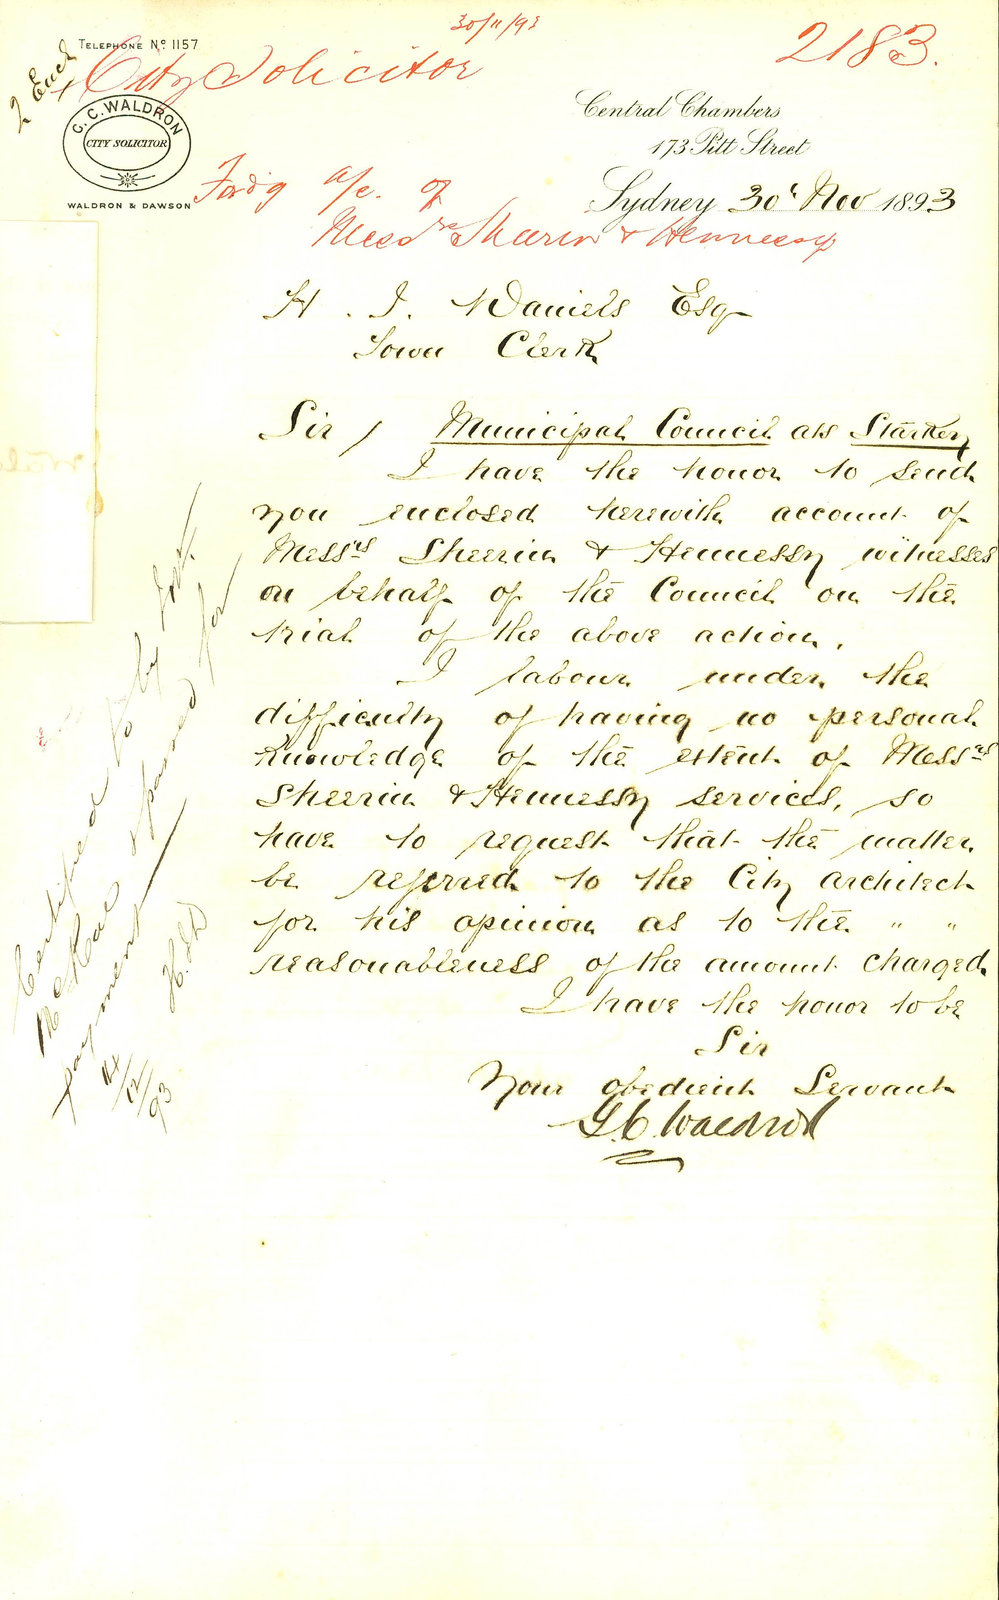 30/11/93
2183.
TELEPHONE No 1157
2 Encl
City Solicitor
G. C. WALDRON
CITY SOLICITOR
WALDRON & DAWSON
Central Chambers
173 Pitt Street
Sydney 30t Nov 1893
Fordg a/c. of
Messrs Sharin & Hennessy
H. J. Daniels Esq
Town Clerk
Sir / Municipal Council ats Starkey
I have the honor to send
you enclosed herewith account of
Messrs Sheerin & Hennessy witnesses
on behalf of the Council on the
trial of the above action.
I labour under the
difficulty of having no personal
knowledge of the extent of Messrs
Sheerin & Hennessy services, so
have to request that the matter
be referred to the City Architect
for his opinion as to the " "
reasonableness of the amount charged
I have the honor to be
Sir
Your obedient Servant
G. C. Waldron
Certified to by
McRae & passed for
payment
H.J.D
14/12/93